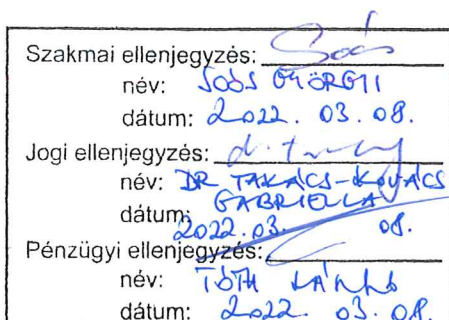 Szakmai ellenjegyzés: Soós
név: SOÓS GYÖRGYI
dátum: 2022. 03. 08.
Jogi ellenjegyzés:
név: DR TAKÁCS-KOVÁCS
GABRIELLA
dátum:
2022. 03. 08.
Pénzügyi ellenjegyzés:
név: TÓTH
dátum: 2022. 03. 08.